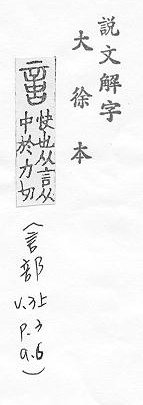 説文解字
大徐本
快也从言从
中於力切
(言部
v.3上
p.3
a.6)